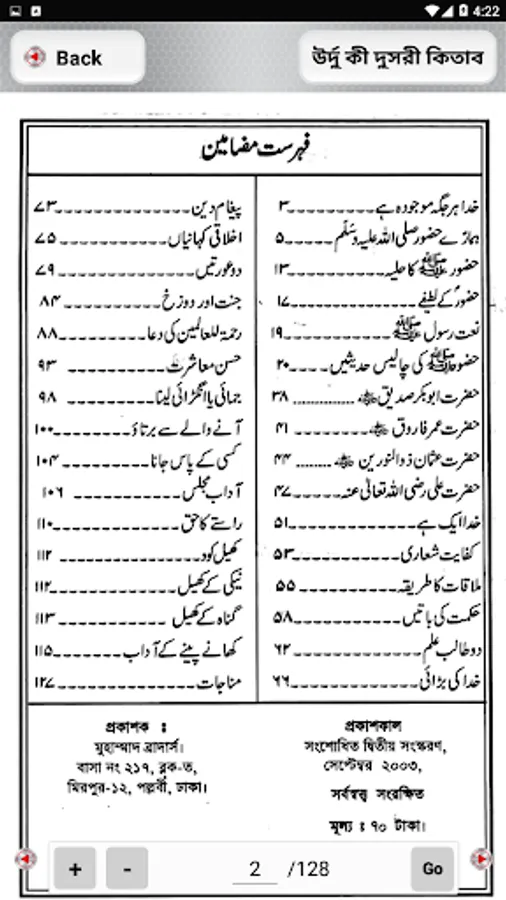 4:22
Back
উর্দু কী দুসরী কিতাব
فہرست مضامین
خدا ہر جگہ موجود ہے ۳
ہمارے حضور صلی اللہ علیہ وسلم ۵
حضور ﷺ کا حلیہ ۱۳
حضورؐ کے لطیفے ۱۷
نعت رسول ﷺ ۱۹
حضور ﷺ کی چالیس حدیثیں ۲۰
حضرت ابوبکر صدیق ؓ ۳۸
حضرت عمر فاروق ؓ ۴۱
حضرت عثمان ذوالنورین ؓ ۴۴
حضرت علی رضی اللہ تعالیٰ عنہ ۴۷
خدا ایک ہے ۵۱
کفایت شعاری ۵۳
ملاقات کا طریقہ ۵۵
حکمت کی باتیں ۵۸
دو طالب علم ۶۲
خدا کی بڑائی ۶۶
پیغام دین ۷۳
اخلاقی کہانیاں ۷۵
دو عورتیں ۷۹
جنت اور دوزخ ۸۴
رحمۃ للعالمین کی دعا ۸۸
حسن معاشرت ۹۳
جمائی یا انگڑائی لینا ۹۸
آنے والے سے برتاؤ ۱۰۰
کسی کے پاس جانا ۱۰۴
آداب مجلس ۱۰۶
راستے کا حق ۱۱۰
کھیل کود ۱۱۲
نیکی کے کھیل ۱۱۲
گناہ کے کھیل ۱۱۳
کھانے پینے کے آداب ۱۱۵
مناجات ۱۲۷
প্রকাশক :
মুহাম্মাদ ব্রাদার্স।
বাসা নং ২১৭, ব্লক-ত,
মিরপুর-১২, পল্লবী, ঢাকা।
প্রকাশকাল
সংশোধিত দ্বিতীয় সংস্করণ,
সেপ্টেম্বর ২০০৩,
সর্বস্বত্ব সংরক্ষিত
মূল্য : ৭০ টাকা।
+ - 2 /128 Go